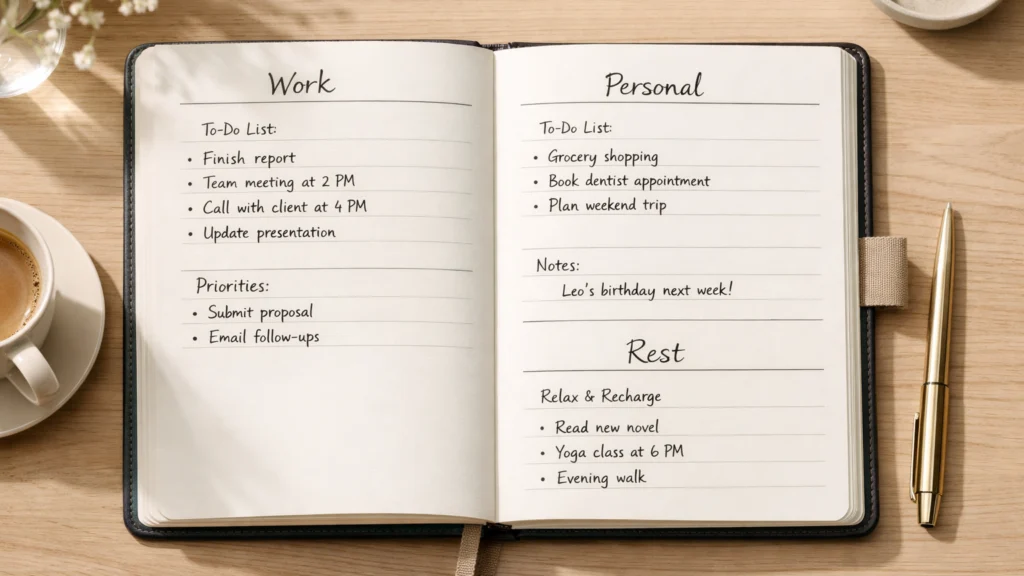 Work
To-Do List:
• Finish report
• Team meeting at 2 PM
• Call with client at 4 PM
• Update presentation
Priorities:
• Submit proposal
• Email follow-ups
Personal
To-Do List:
• Grocery shopping
• Book dentist appointment
• Plan weekend trip
Notes:
Leo's birthday next week!
Rest
Relax & Recharge
• Read new novel
• Yoga class at 6 PM
• Evening walk